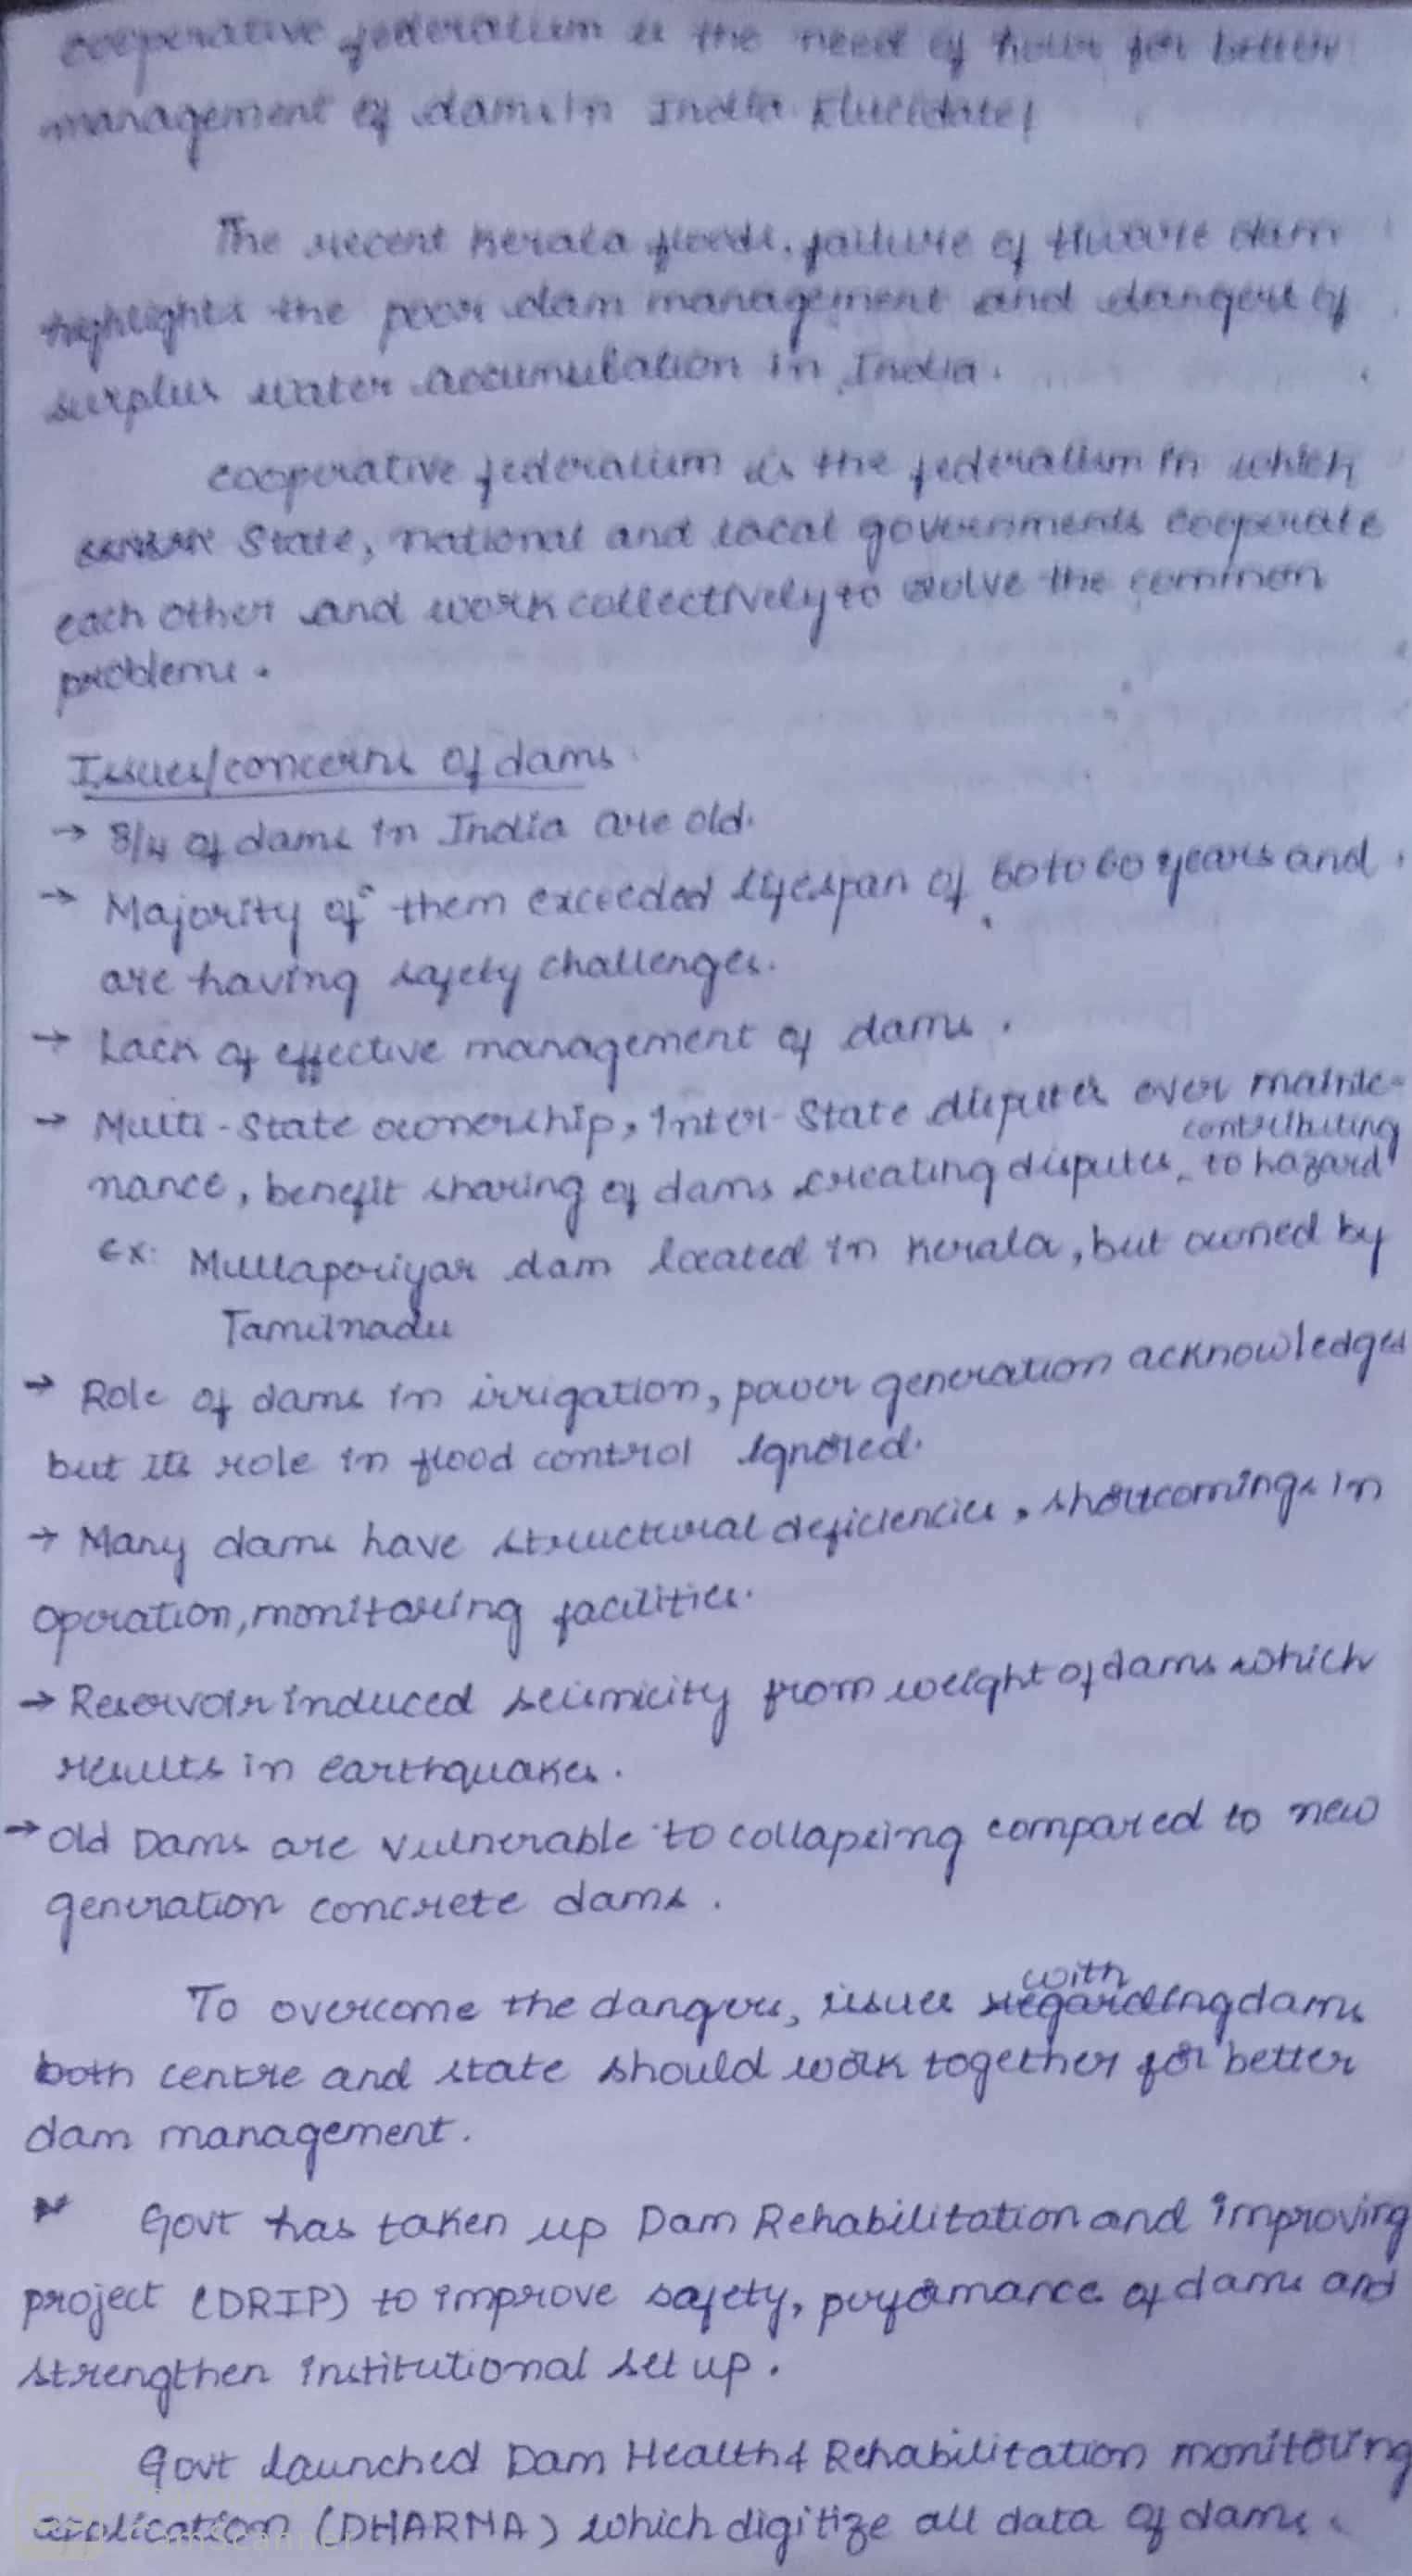 cooperative federalism is the need of hour for better
management of dams in India Elucidate!
The recent Kerala floods, failure of dam
highlights the poor dam management and dangers of
surplus water accumulation in India.
cooperative federalism is the federalism in which
State, national and local governments cooperate
each other and work collectively to solve the common
problems.
Issues/concerns of dams
→ 3/4 of dams in India are old.
→ Majority of them exceeded lifespan of to 60 years and
are having safety challenges.
→ Lack of effective management of dams.
→ Multi-State ownership, Inter-State disputes over mainte-
contributing
nance, benefit sharing of dams creating disputes to hazard
Ex: Mullaperiyar dam located in Kerala, but owned by
Tamilnadu
→ Role of dams in irrigation, power generation acknowledges
but its role in flood control ignored.
→ Many dams have structural deficiencies, shortcomings in
operation, monitoring facilities.
→ Reservoir induced seismicity from weight of dams which
results in earthquakes.
→ Old Dams are vulnerable to collapsing compared to new
generation concrete dams.
with
To overcome the dangers, issues regarding dams
both centre and state should work together for better
dam management.
Govt has taken up Dam Rehabilitation and improving
project (DRIP) to improve safety, performance of dams and
strengthen institutional set up.
Govt launched Dam Health & Rehabilitation monitoring
application (DHARMA) which digitize all data of dams.
CS CamScanner